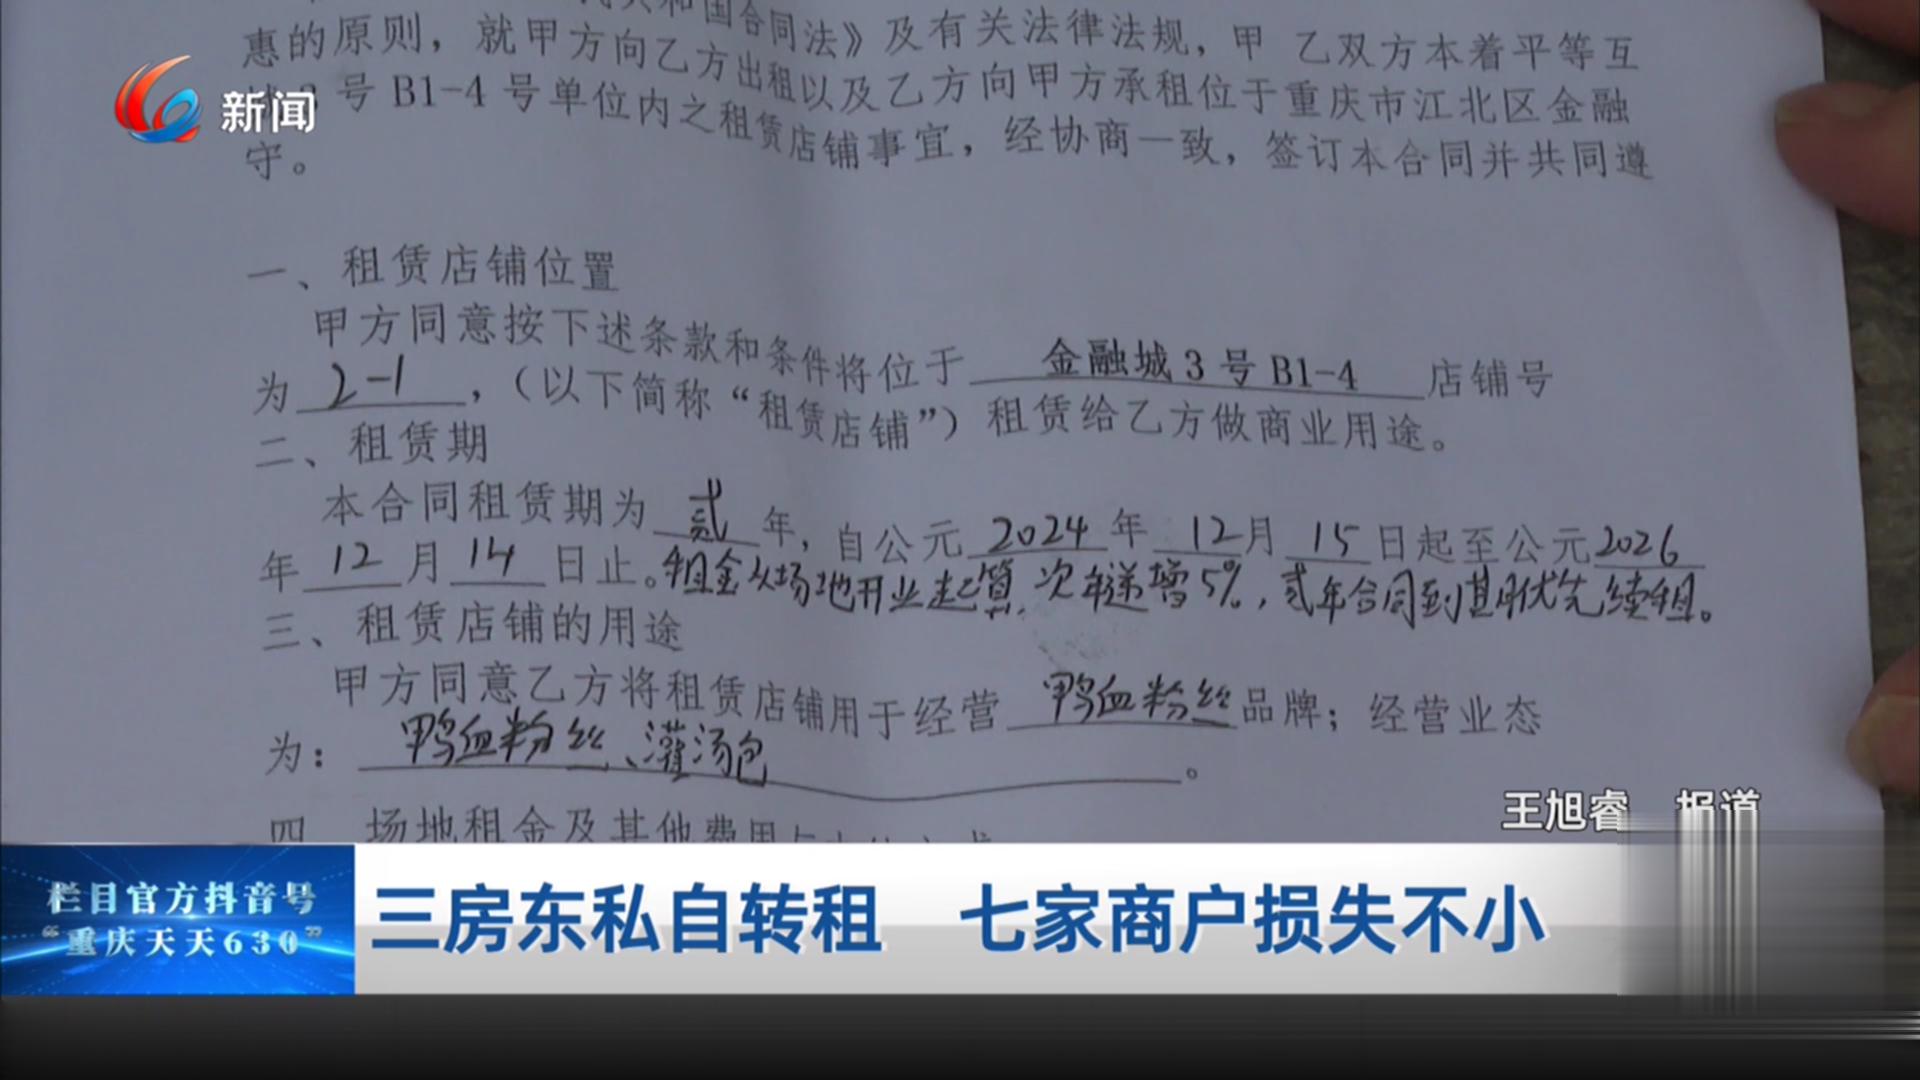 共和国合同法》及有关法律法规，甲 乙双方本着平等互
惠的原则，就甲方向乙方出租以及乙方向甲方承租位于重庆市江北区金融
号B1-4号单位内之租赁店铺事宜，经协商一致，签订本合同并共同遵
守。
新闻
一、租赁店铺位置
甲方同意按下述条款和条件将位于 金融城3号B1-4 店铺号
为 2-1 ，（以下简称“租赁店铺”）租赁给乙方做商业用途。
二、租赁期
本合同租赁期为 贰 年，自公元 2024 年 12 月 15 日起至公元 2026
年 12 月 14 日止。租金从场地开业起算，次年递增5%，贰年合同到期优先续租。
三、租赁店铺的用途
甲方同意乙方将租赁店铺用于经营 鸭血粉丝 品牌；经营业态
为： 鸭血粉丝、灌汤包 。
四、场地租金及其他费用
王旭睿 报道
栏目官方抖音号
“重庆天天630”
三房东私自转租 七家商户损失不小